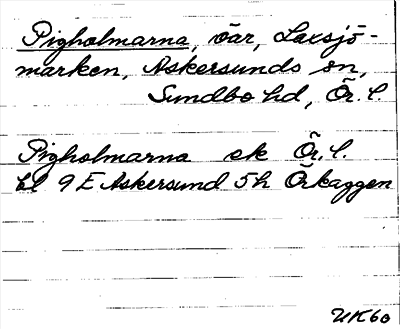 Pigholmarna, öar, Laxsjö-
marken, Askersunds sn,
Sundbo hd, Ör. l.
Pigholmarna ek Ör. l.
bl 9 E Askersund 5h Örkaggen
UK60